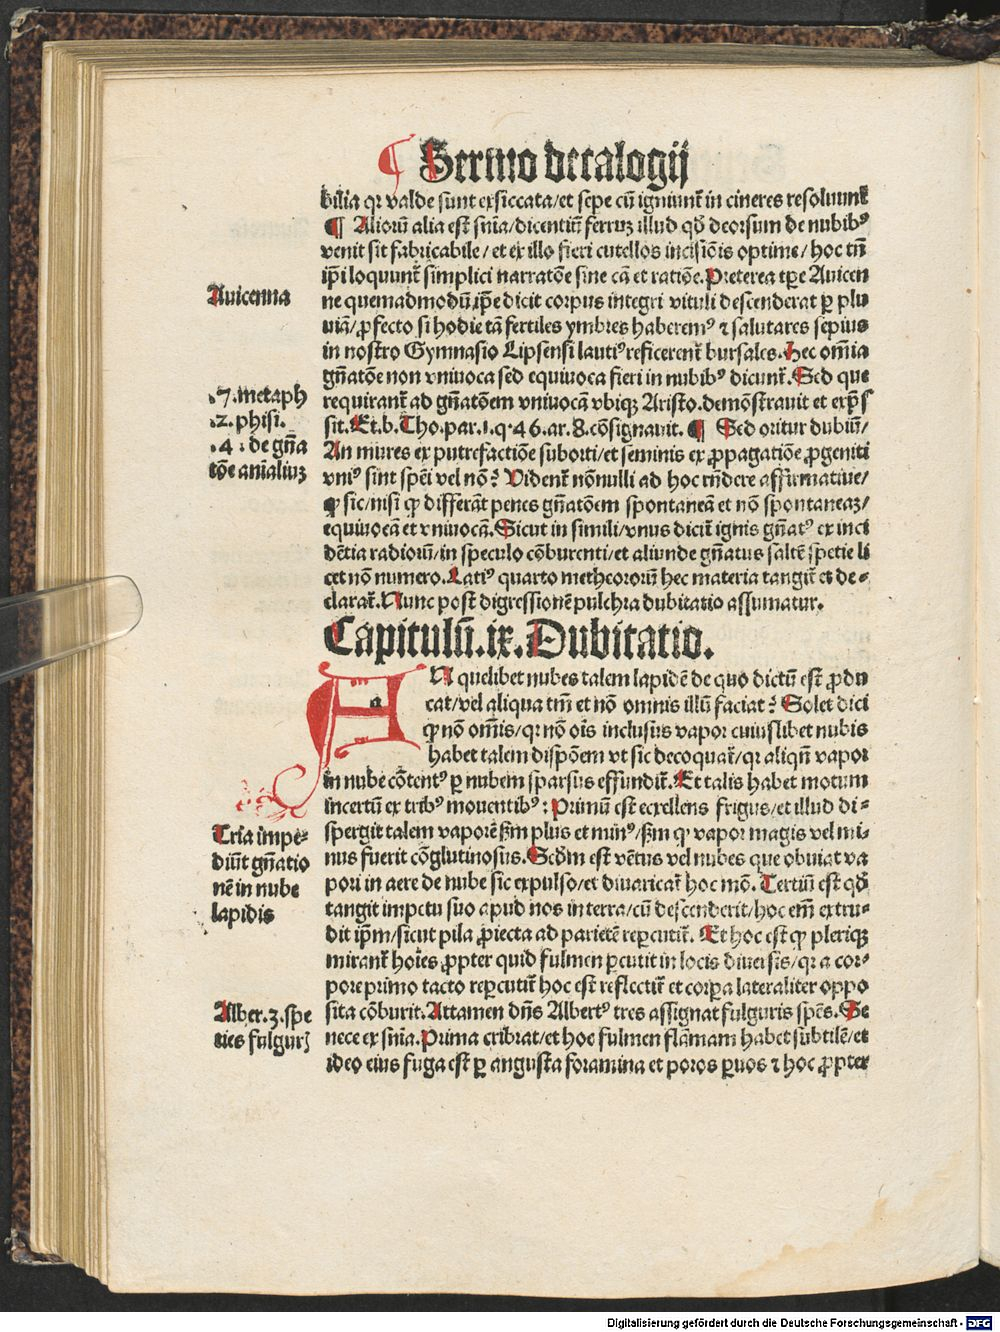 ¶ Sermo decalogij
bilia qr valde sunt exsiccata/et sepe cū igniunt̄ in cineres resoluunt̄
¶ Aliorū alia est sn̄ia/dicentiū ferruꝫ illud qd̄ deorsum de nubibꝰ
venit sit fabricabile/et ex illo fieri cutellos incisiōis optime/hoc tn̄
ip̄i loquunt̄ simplici narratōe sine cā et ratiōe. Preterea tꝑe Auicen
Auicenna
ne quemadmodū ip̄e dicit corpus integri vituli descenderat ꝑ plu
uiā/ꝓfecto si hodie tā fertiles ymbres haberemꝰ ⁊ salutares sepius
in nostro Gymnasio Lipsensi lautiꝰ reficerent̄ bursales. Hec om̄ia
gn̄atōe non vniuoca sed equiuoca fieri in nubibꝰ dicunt̄. Sed que
.7. metaph
.2. phisi.
.4. de gn̄a
tōe anīaliuꝫ
requirant̄ ad gn̄atōem vniuocā vbiqꝫ Aristo. demōstrauit et exp̄s
sit. Et. b. Tho. par. 1. q. 46. ar. 8. cōsignauit. ¶ Sed oritur dubiū/
An mures ex putrefactiōe suborti/et seminis ex ꝓpagatiōe ꝓgeniti
vniꝰ sint spēi vel nō? Vident̄ nōnulli ad hoc rn̄dere affirmatiue/
ꝙ sic/nisi ꝙ differāt penes gn̄atōem spontaneā et nō spontaneaꝫ/
equiuocā et vniuocā. Sicut in simili/vnus dicit̄ ignis gn̄atꝰ ex inci
dētia radiorū/in speculo cōburenti/et aliunde gn̄atus saltē spetie li
cet nō numero. Latiꝰ quarto metheororū hec materia tangit̄ et de-
clarat̄. Nunc post digressionē pulchra dubitatio assumatur.
Capitulū. ix. Dubitatio.
AN quelibet nubes talem lapidē de quo dictū est ꝓdu
cat/vel aliqua tm̄ et nō omnis illū faciat? Solet dici
ꝙ nō om̄is/qr nō oīs inclusus vapor cuiuslibet nubis
habet talem dispōem vt sic decoquat̄/qr aliqn̄ vapor
in nube cōtentꝰ ꝑ nubem sparsus effundit̄. Et talis habet motum
incertū ex tribꝰ mouentibꝰ: Primū est excellens frigus/et illud di-
Tria impe-
diūt gn̄atio
nē in nube
lapidis
spergit talem vaporē ßm plus et minꝰ/ßm qr vapor magis vel mi-
nus fuerit cōglutinosus. Scd̄m est vētus vel nubes que obuiat va
pori in aere de nube sic expulso/et diuaricat̄ hoc mō. Tertiū est qd̄
tangit impetu suo apud nos in terra/cū descenderit/hoc em̄ extru-
dit ip̄m/sicut pila ꝓiecta ad parietē reꝑcutit̄. Et hoc est ꝙ pleriqꝫ
mirant̄ hoīes ꝓpter quid fulmen ꝑcutit in locis diuersis/qr a cor-
pore primo tacto reꝑcutit̄ hoc est reflectit̄ et corꝑa lateraliter oppo
Alber. 3. spe
ties fulgurꝭ
sita cōburit. Attamen dn̄s Albertꝰ tres assignat fulguris spēs. Se
nece ex sn̄ia. Prima cribrat/et hoc fulmen flāmam habet subtilē/et
ideo eius fuga est ꝑ angusta foramina et poros ꝑuos ⁊ hoc ꝓpter
Digitalisierung gefördert durch die Deutsche Forschungsgemeinschaft - DFG